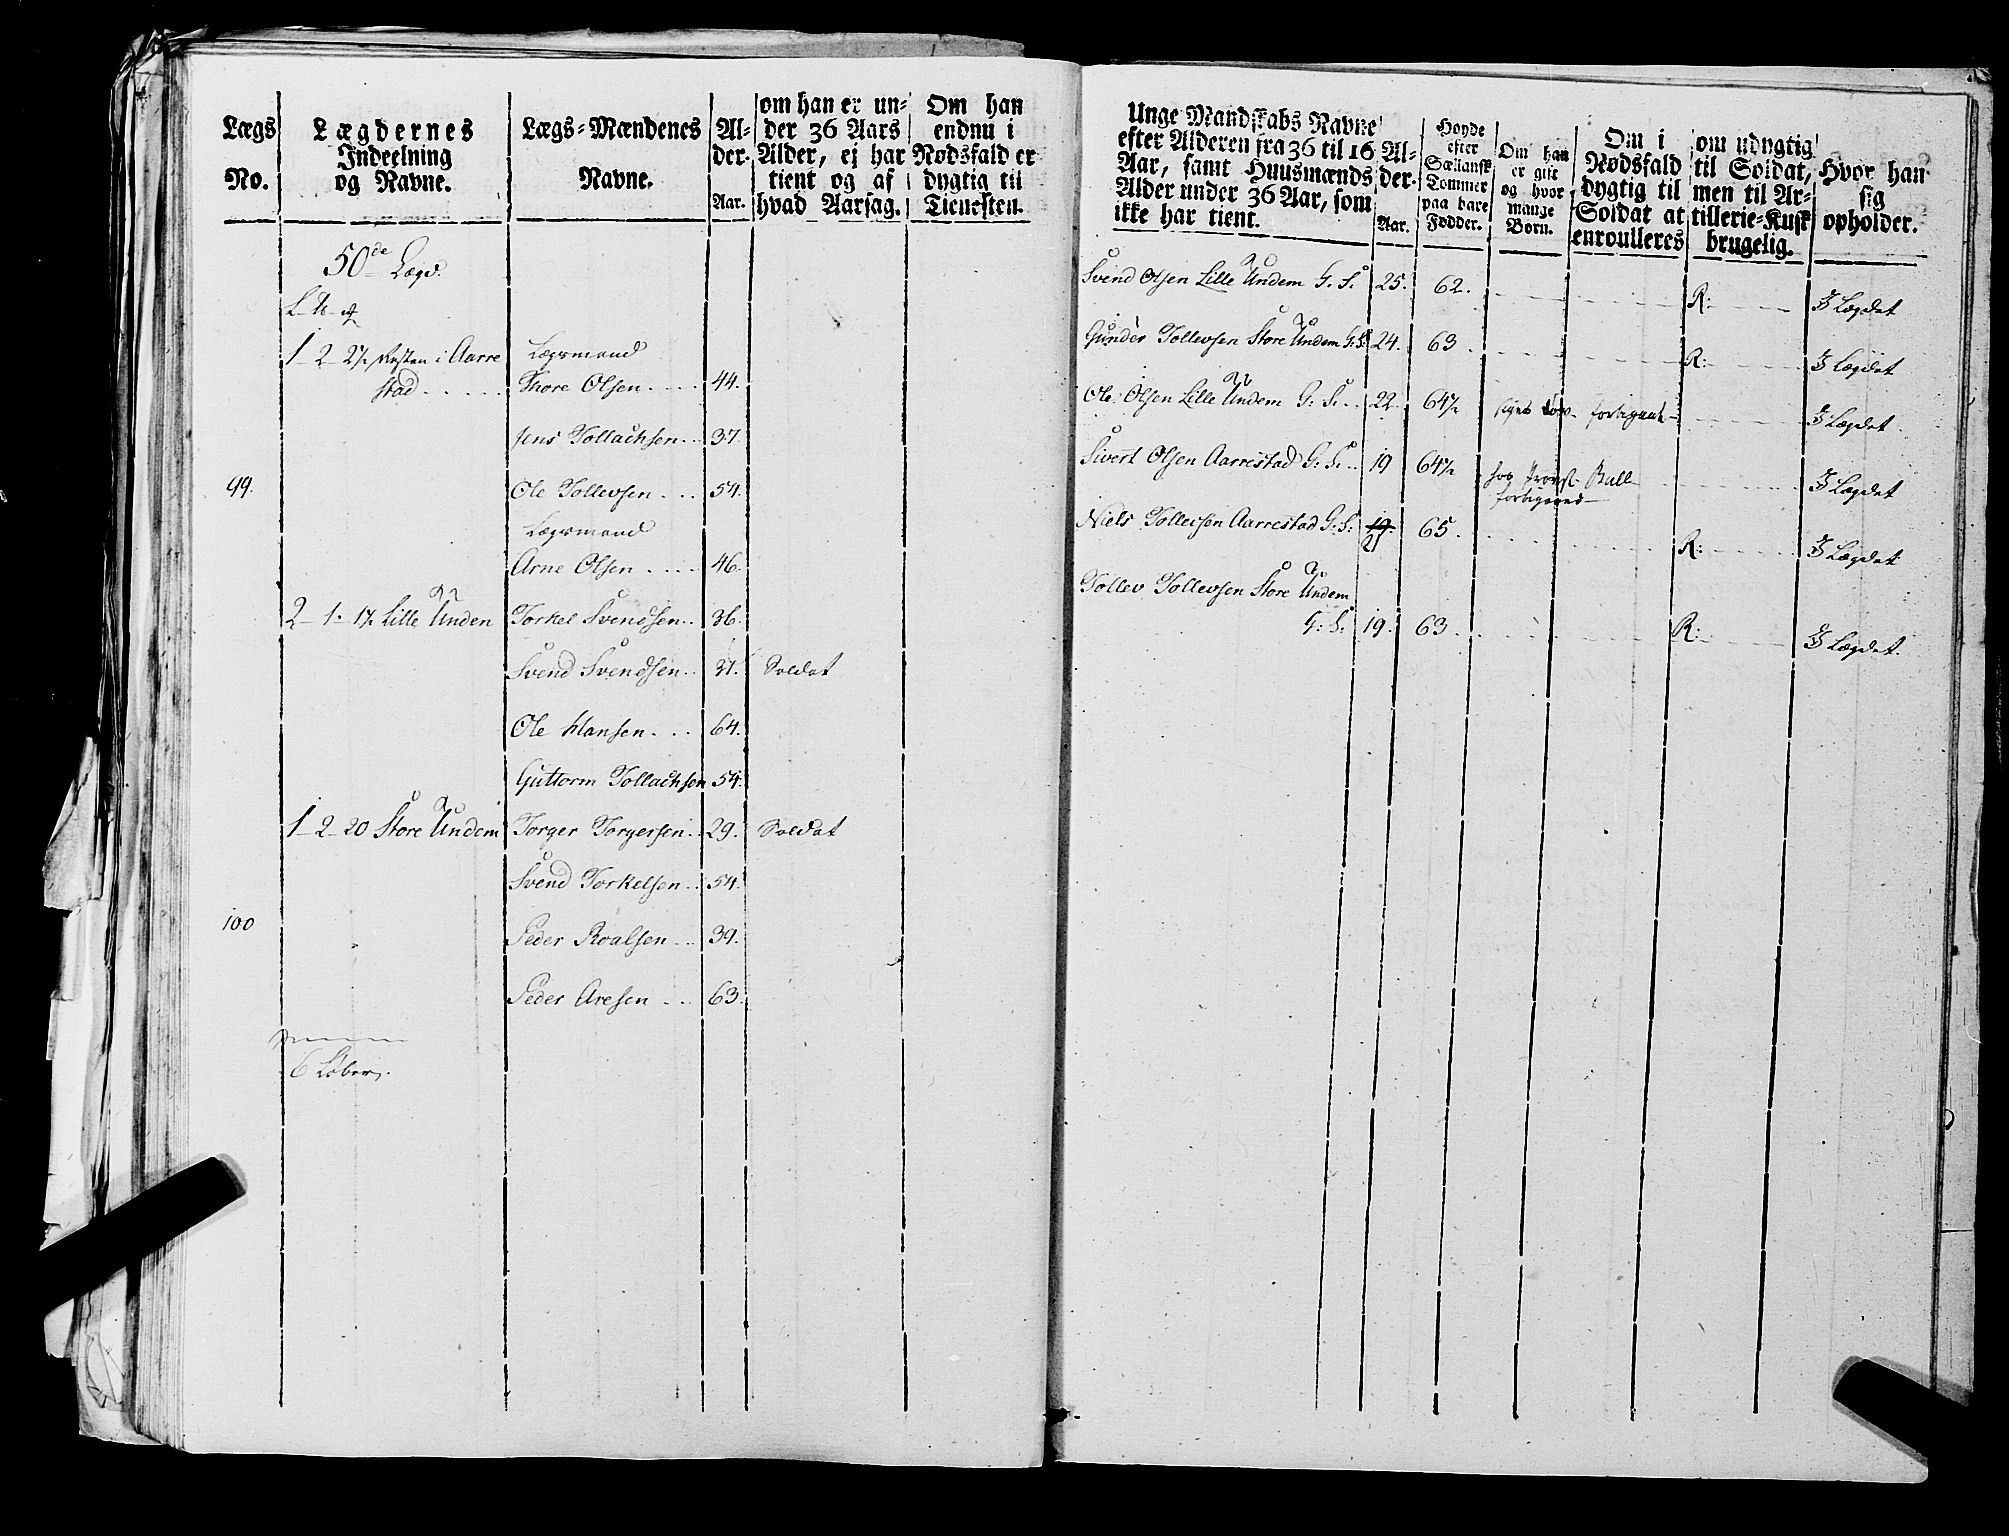 Lægs No.
Lægdernes Indeelning og Navne.
Lægs-Mændenes Navne.
Al-der. Aar.
om han er un-der 36 Aars Alder, ej har tient og af hvad Aarsag.
Om han endnu i Nødsfald er dygtig til Tienesten.
50de Lægd.
1 - 2 - 2½ Resten i Aarre
stad . . . . .
Lægsmand
Thore Olsen . . . . 44.
Jens Tollachsen . . 37.
99.
Ole Tollevsen . . . 54.
Lægsmand
Arne Olsen . . . . 46.
2 - 1 - 1½ Lille Unden Torkel Svendsen . . 36.
Svend Svendsen . . 31. Soldat
Ole Hansen . . . 64.
Guttorm Tollachsen 54.
1 - 2 - 20 Store Undem Torger Torgersen . . 29. Soldat
Svend Torkelsen . . 54.
100
Peder Roalsen . . . 39.
Peder Aresen . . . 63.
6 Løber.
Unge Mandskabs Navne efter Alderen fra 36 til 16 Aar, samt Huusmænds Alder under 36 Aar, som ikke har tient.
Al-der. Aar.
Høyde efter Sællansk Tommer paa bare Fødder.
Om han er gift og hvor mange Børn.
Om i Nødsfald dygtig til Soldat at enroulleres
om udygtig til Soldat, men til Ar-tillerie-Kusk brugelig.
Hvor han sig opholder.
Svend Olsen Lille Undem G. S. 25. 62. R: I Lægdet
Gunder Tollevsen Store Undem G: S: 24. 63 R: I Lægdet
Ole Olsen Lille Undem G: S. . . 22 64½ I Lægdet
Sivert Olsen Aarrestad G: S. . . 19 64½ hos I Lægdet
Niels Tollevsen Aarrestad G: S: 19. 21 65. R: I Lægdet
Tollev Tollevsen Store Undem
G: S: 19. 63 R: I Lægdet.